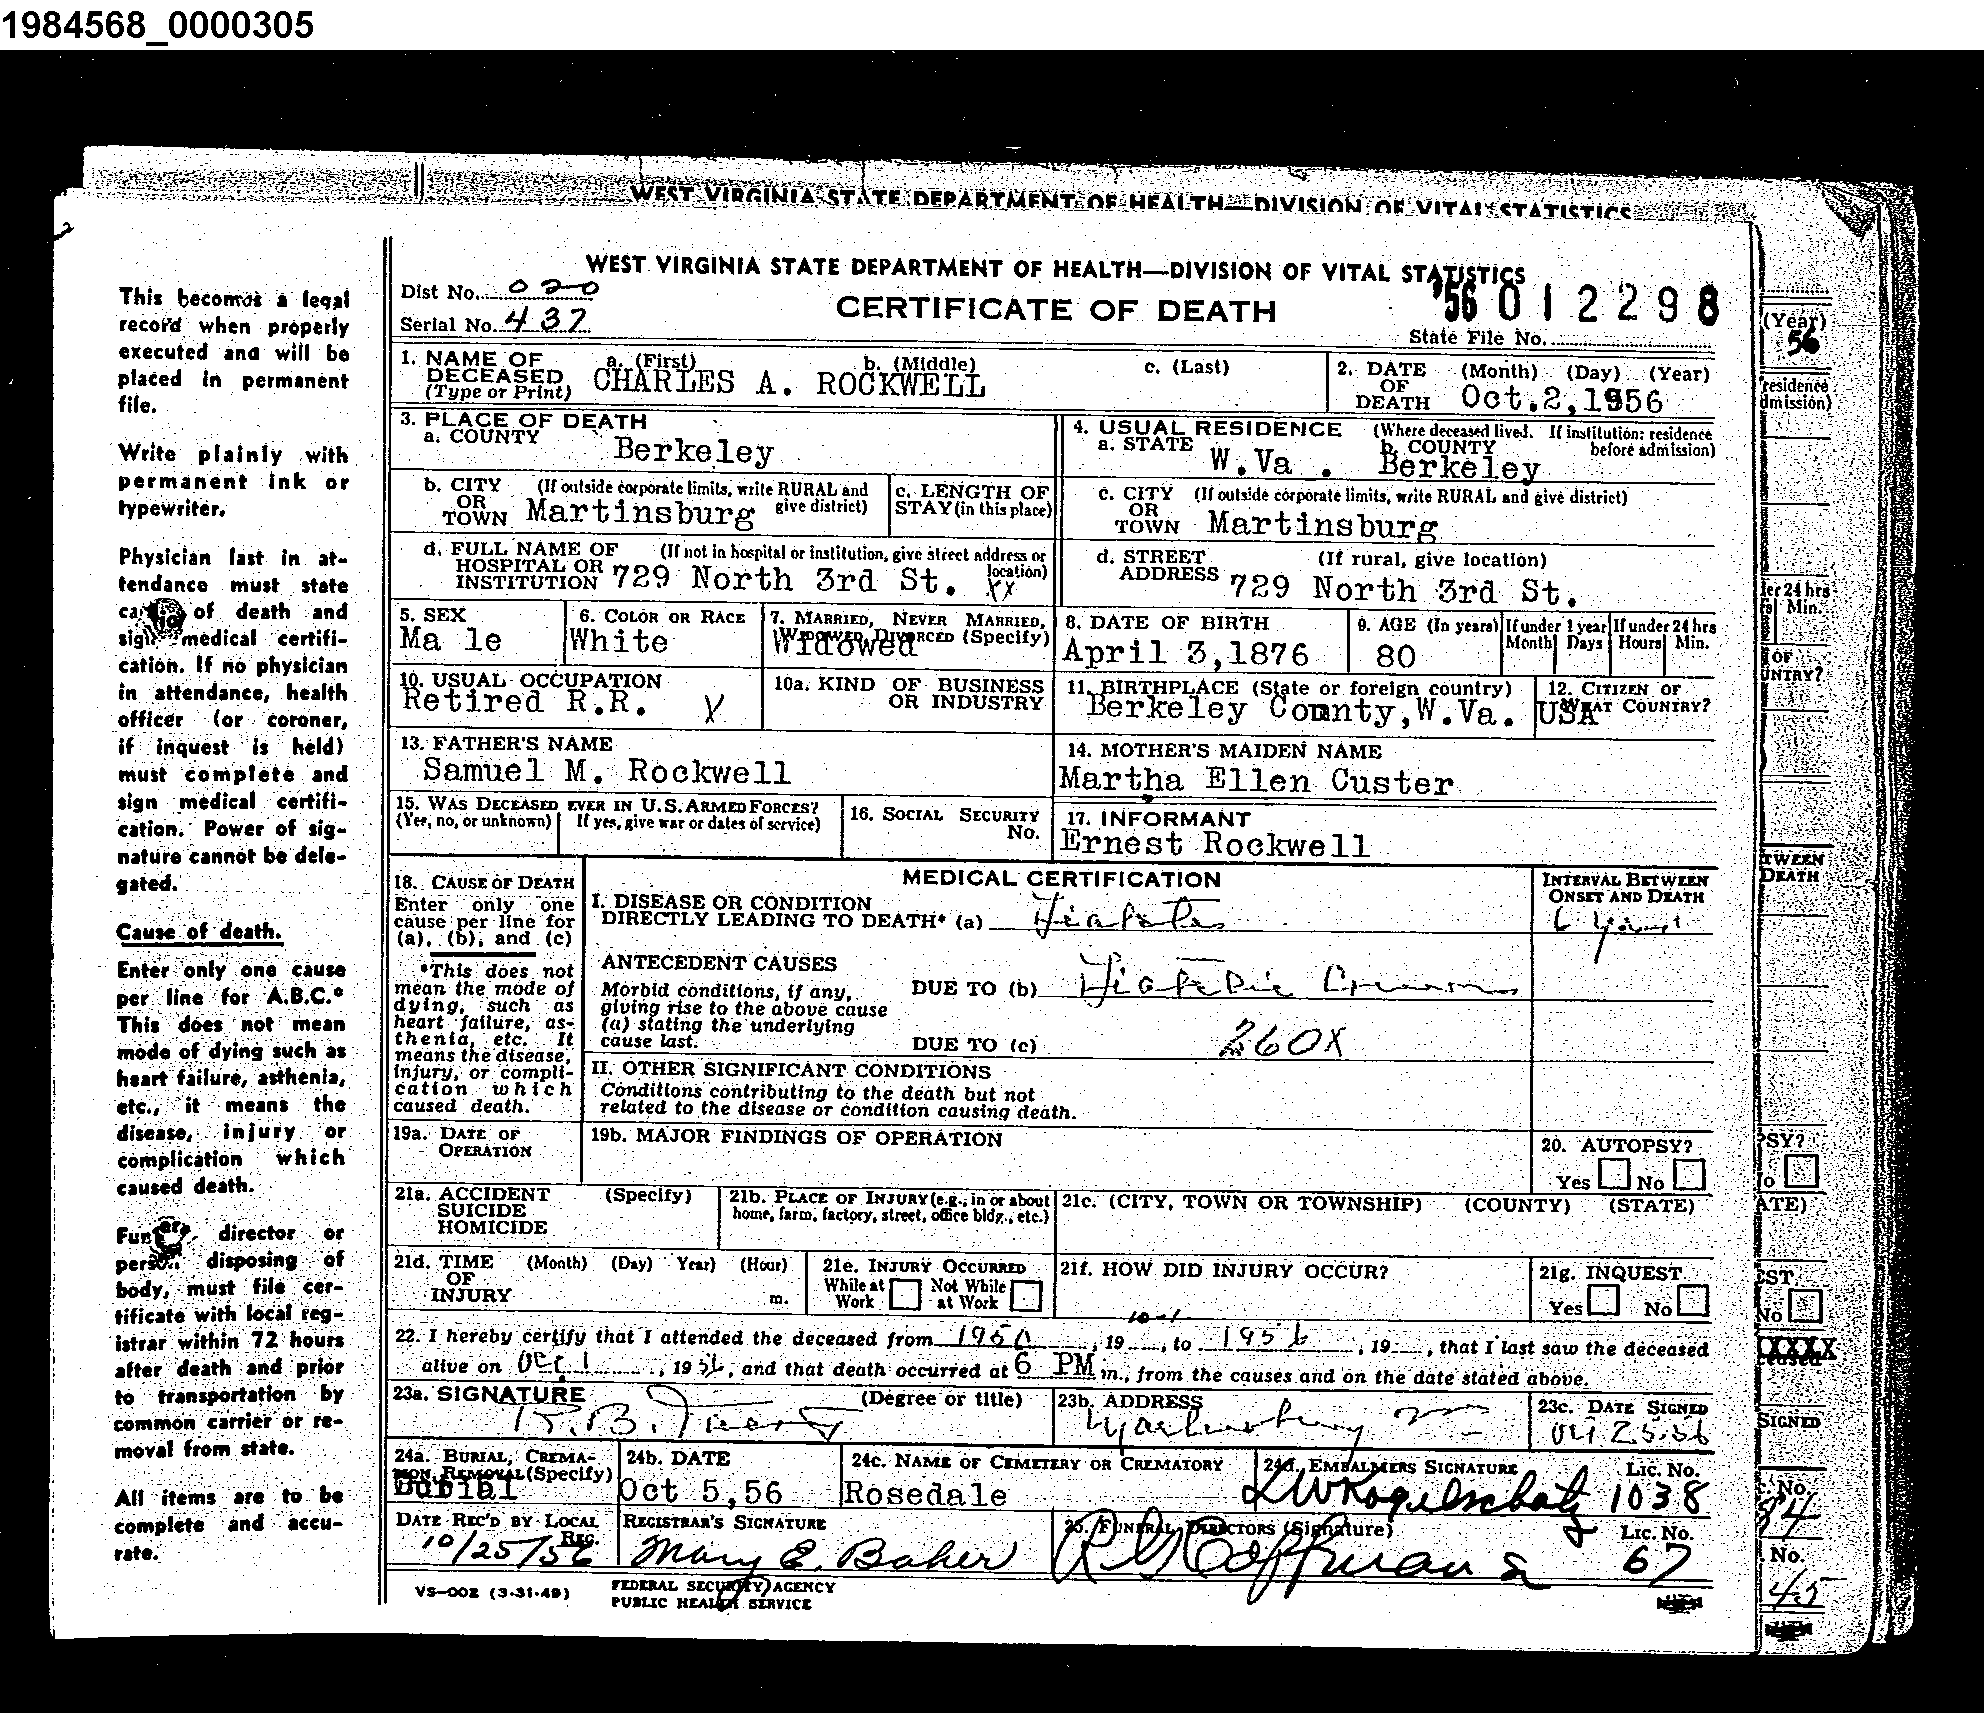 1984568_0000305
WEST VIRGINIA STATE DEPARTMENT OF HEALTH—DIVISION OF VITAL STATISTICS
This becomes a legal
record when properly
executed and will be
placed in permanent
file.
Write plainly with
permanent ink or
typewriter.
Physician last in at-
tendance must state
of death and
sign medical certifi-
cation. If no physician
in attendance, health
officer (or coroner,
if inquest is held)
must complete and
sign medical certifi-
cation. Power of sig-
nature cannot be dele-
gated.
Cause of death.
Enter only one cause
per line for A.B.C.*
This does not mean
mode of dying such as
heart failure, asthenia,
etc., it means the
disease, injury or
complication which
caused death.
director or
disposing of
body, must file cer-
tificate with local reg-
istrar within 72 hours
after death and prior
to transportation by
common carrier or re-
moval from state.
All items are to be
complete and accu-
rate.
WEST VIRGINIA STATE DEPARTMENT OF HEALTH—DIVISION OF VITAL STATISTICS
Dist No. 020
CERTIFICATE OF DEATH
'56 012298
Serial No. 437
State File No.
1. NAME OF DECEASED (Type or Print) a. (First) b. (Middle) c. (Last)
CHARLES A. ROCKWELL
2. DATE OF DEATH (Month) (Day) (Year)
Oct.2,1956
3. PLACE OF DEATH
a. COUNTY Berkeley
4. USUAL RESIDENCE (Where deceased lived. If institution: residence before admission)
a. STATE W.Va. b. COUNTY Berkeley
b. CITY OR TOWN (If outside corporate limits, write RURAL and give district) Martinsburg
c. LENGTH OF STAY (in this place)
c. CITY OR TOWN (If outside corporate limits, write RURAL and give district) Martinsburg
d. FULL NAME OF HOSPITAL OR INSTITUTION (If not in hospital or institution, give street address or location) 729 North 3rd St. XX
d. STREET ADDRESS (If rural, give location) 729 North 3rd St.
5. SEX Ma le
6. COLOR OR RACE White
7. MARRIED, NEVER MARRIED, WIDOWED, DIVORCED (Specify) Widowed
8. DATE OF BIRTH April 3,1876
9. AGE (In years) 80 If under 1 year Month Days If under 24 hrs Hours Min.
10. USUAL OCCUPATION Retired R.R. X
10a. KIND OF BUSINESS OR INDUSTRY
11. BIRTHPLACE (State or foreign country) Berkeley County,W.Va.
12. CITIZEN OF WHAT COUNTRY? USA
13. FATHER'S NAME Samuel M. Rockwell
14. MOTHER'S MAIDEN NAME Martha Ellen Custer
15. WAS DECEASED EVER IN U.S. ARMED FORCES?
(Yes, no, or unknown) If yes, give war or dates of service)
16. SOCIAL SECURITY No.
17. INFORMANT Ernest Rockwell
18. CAUSE OF DEATH
Enter only one
cause per line for
(a), (b), and (c)
*This does not
mean the mode of
dying, such as
heart failure, as-
thenia, etc. It
means the disease,
injury, or compli-
cation which
caused death.
MEDICAL CERTIFICATION
INTERVAL BETWEEN ONSET AND DEATH
I. DISEASE OR CONDITION
DIRECTLY LEADING TO DEATH* (a) Diabetes
ANTECEDENT CAUSES
Morbid conditions, if any,
giving rise to the above cause
(a) stating the underlying
cause last.
DUE TO (b) Diabetic
DUE TO (c) 260X
II. OTHER SIGNIFICANT CONDITIONS
Conditions contributing to the death but not
related to the disease or condition causing death.
19a. DATE OF OPERATION
19b. MAJOR FINDINGS OF OPERATION
20. AUTOPSY? Yes No
21a. ACCIDENT SUICIDE HOMICIDE (Specify)
21b. PLACE OF INJURY (e.g., in or about home, farm, factory, street, office bldg., etc.)
21c. (CITY, TOWN OR TOWNSHIP) (COUNTY) (STATE)
21d. TIME OF INJURY (Month) (Day) Year) (Hour) m.
21e. INJURY OCCURRED While at Work Not While at Work
21f. HOW DID INJURY OCCUR?
21g. INQUEST Yes No
10-1
22. I hereby certify that I attended the deceased from 1950, 19 , to 1956, 19 , that I last saw the deceased
alive on Oct 1, 1956, and that death occurred at 6 PM m., from the causes and on the date stated above.
23a. SIGNATURE (Degree or title)
23b. ADDRESS Martinsburg
23c. DATE SIGNED Oct 25.56
24a. BURIAL, CREMATION, REMOVAL (Specify) Burial
24b. DATE Oct 5,56
24c. NAME OF CEMETERY OR CREMATORY Rosedale
24d. EMBALMERS SIGNATURE LW Kogelschatz Lic. No. 1038
DATE REC'D BY LOCAL REG. 10/25/56
REGISTRAR'S SIGNATURE Mary E. Baker
25. FUNERAL DIRECTORS (Signature) Lic. No. 67
VS-002 (3-31-49)
FEDERAL SECURITY AGENCY
PUBLIC HEALTH SERVICE